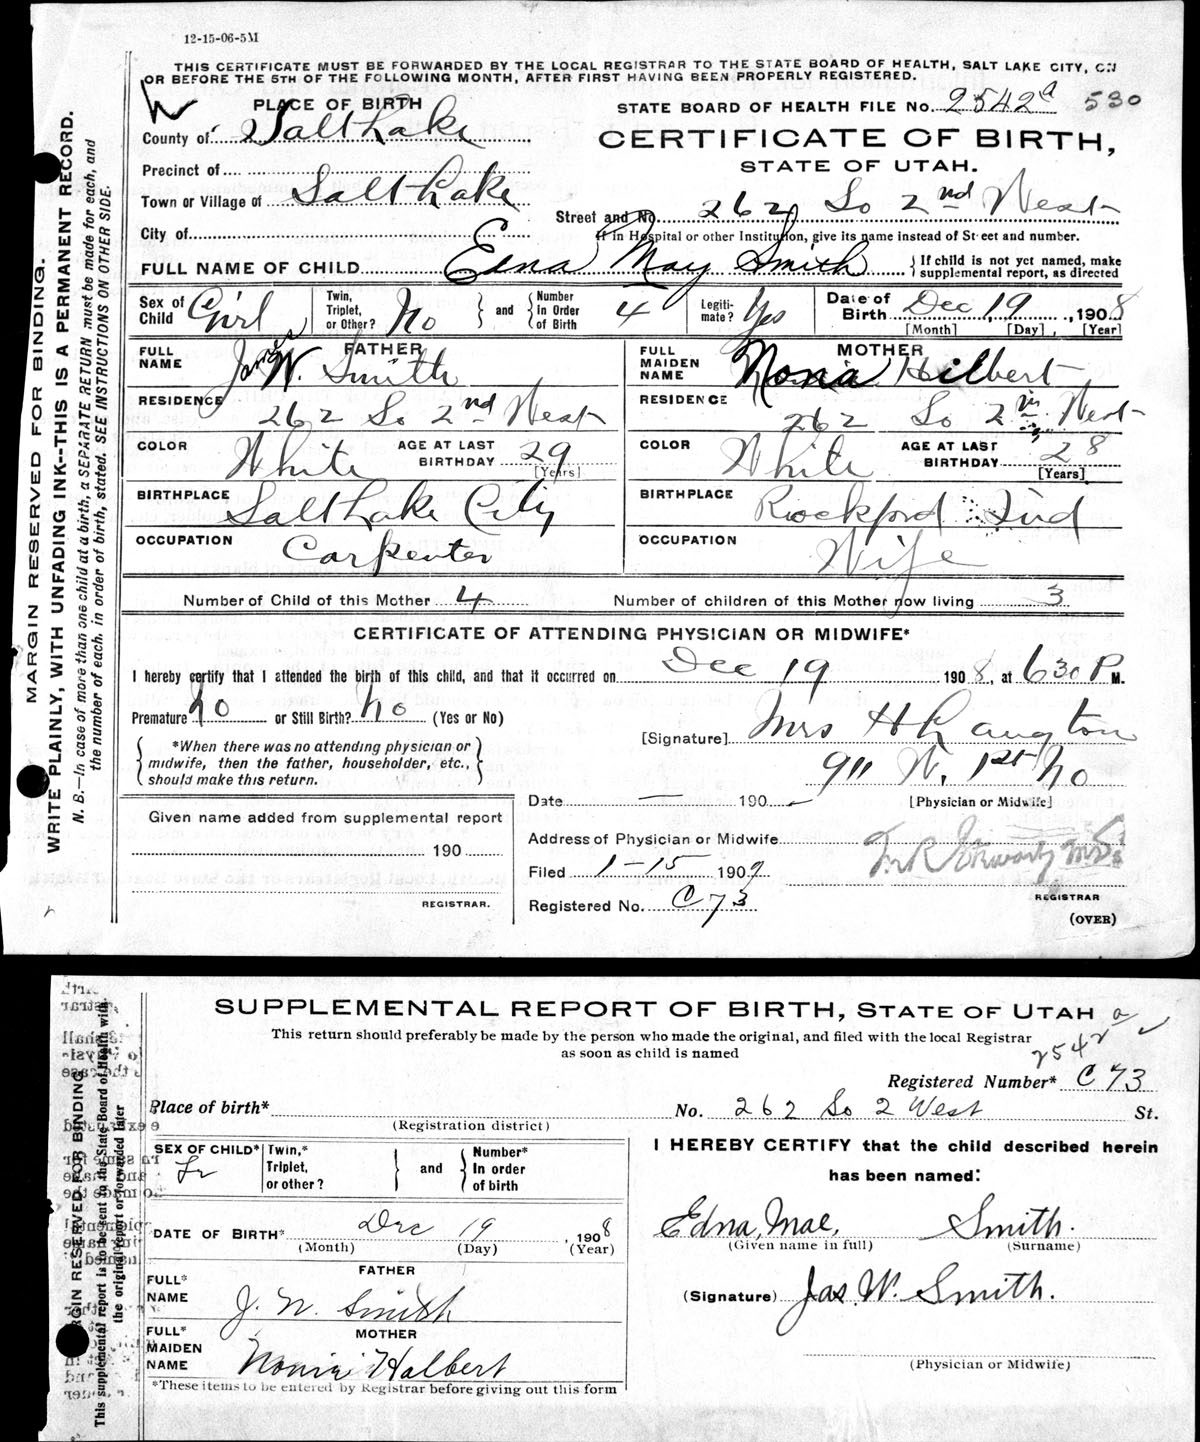 12-15-06-5M
THIS CERTIFICATE MUST BE FORWARDED BY THE LOCAL REGISTRAR TO THE STATE BOARD OF HEALTH, SALT LAKE CITY, ON
OR BEFORE THE 5TH OF THE FOLLOWING MONTH, AFTER FIRST HAVING BEEN PROPERLY REGISTERED.
MARGIN RESERVED FOR BINDING.
WRITE PLAINLY, WITH UNFADING INK--THIS IS A PERMANENT RECORD.
N. B.—In case of more than one child at a birth, a SEPARATE RETURN must be made for each, and
the number of each, in order of birth, stated. SEE INSTRUCTIONS ON OTHER SIDE.
PLACE OF BIRTH
STATE BOARD OF HEALTH FILE No. 2542a 530
County of Salt Lake
CERTIFICATE OF BIRTH,
STATE OF UTAH.
Precinct of
Town or Village of Salt Lake
Street and No. 262 So 2nd West
City of
If in Hospital or other Institution, give its name instead of Street and number.
FULL NAME OF CHILD Edna May Smith
If child is not yet named, make
supplemental report, as directed
Sex of Child Girl
Twin, Triplet, or Other? No and Number In Order of Birth 4
Legiti-mate? Yes
Date of Birth Dec 19, 1908
[Month] [Day] [Year]
FATHER
FULL NAME James W. Smith
RESIDENCE 262 So 2nd West
COLOR White AGE AT LAST BIRTHDAY 29
[Years]
BIRTHPLACE Salt Lake City
OCCUPATION Carpenter
MOTHER
FULL MAIDEN NAME Nona Hilbert
RESIDENCE 262 So 2 West
COLOR White AGE AT LAST BIRTHDAY 28
[Years]
BIRTHPLACE Rockford Ind
OCCUPATION Wife
Number of Child of this Mother 4 Number of children of this Mother now living 3
CERTIFICATE OF ATTENDING PHYSICIAN OR MIDWIFE*
I hereby certify that I attended the birth of this child, and that it occurred on Dec 19 1908, at 630 P M.
Premature? No or Still Birth? No (Yes or No)
[Signature] Mrs H Langton
*When there was no attending physician or
midwife, then the father, householder, etc.,
should make this return.
911 W. 1st No
[Physician or Midwife]
Date — 190 -
Given name added from supplemental report
190
REGISTRAR.
Address of Physician or Midwife
Filed 1-15 1909
REGISTRAR
Registered No. C73
(OVER)
SUPPLEMENTAL REPORT OF BIRTH, STATE OF UTAH
This return should preferably be made by the person who made the original, and filed with the local Registrar
as soon as child is named
2542 a
MARGIN RESERVED FOR BINDING
This supplemental report is to be sent to the State Board of Health with
the original report or forwarded later
Registered Number* C 73
Place of birth* No. 262 So 2 West St.
(Registration district)
SEX OF CHILD*
Twin,* Triplet, or other? and Number* In order of birth
I HEREBY CERTIFY that the child described herein
has been named:
DATE OF BIRTH* Dec 19, 1908
(Month) (Day) (Year)
Edna, Mae, Smith.
(Given name in full) (Surname)
FATHER
FULL* NAME J. W. Smith
(Signature) Jas. W. Smith.
MOTHER
FULL* MAIDEN NAME Nonia Halbert
(Physician or Midwife)
*These items to be entered by Registrar before giving out this form